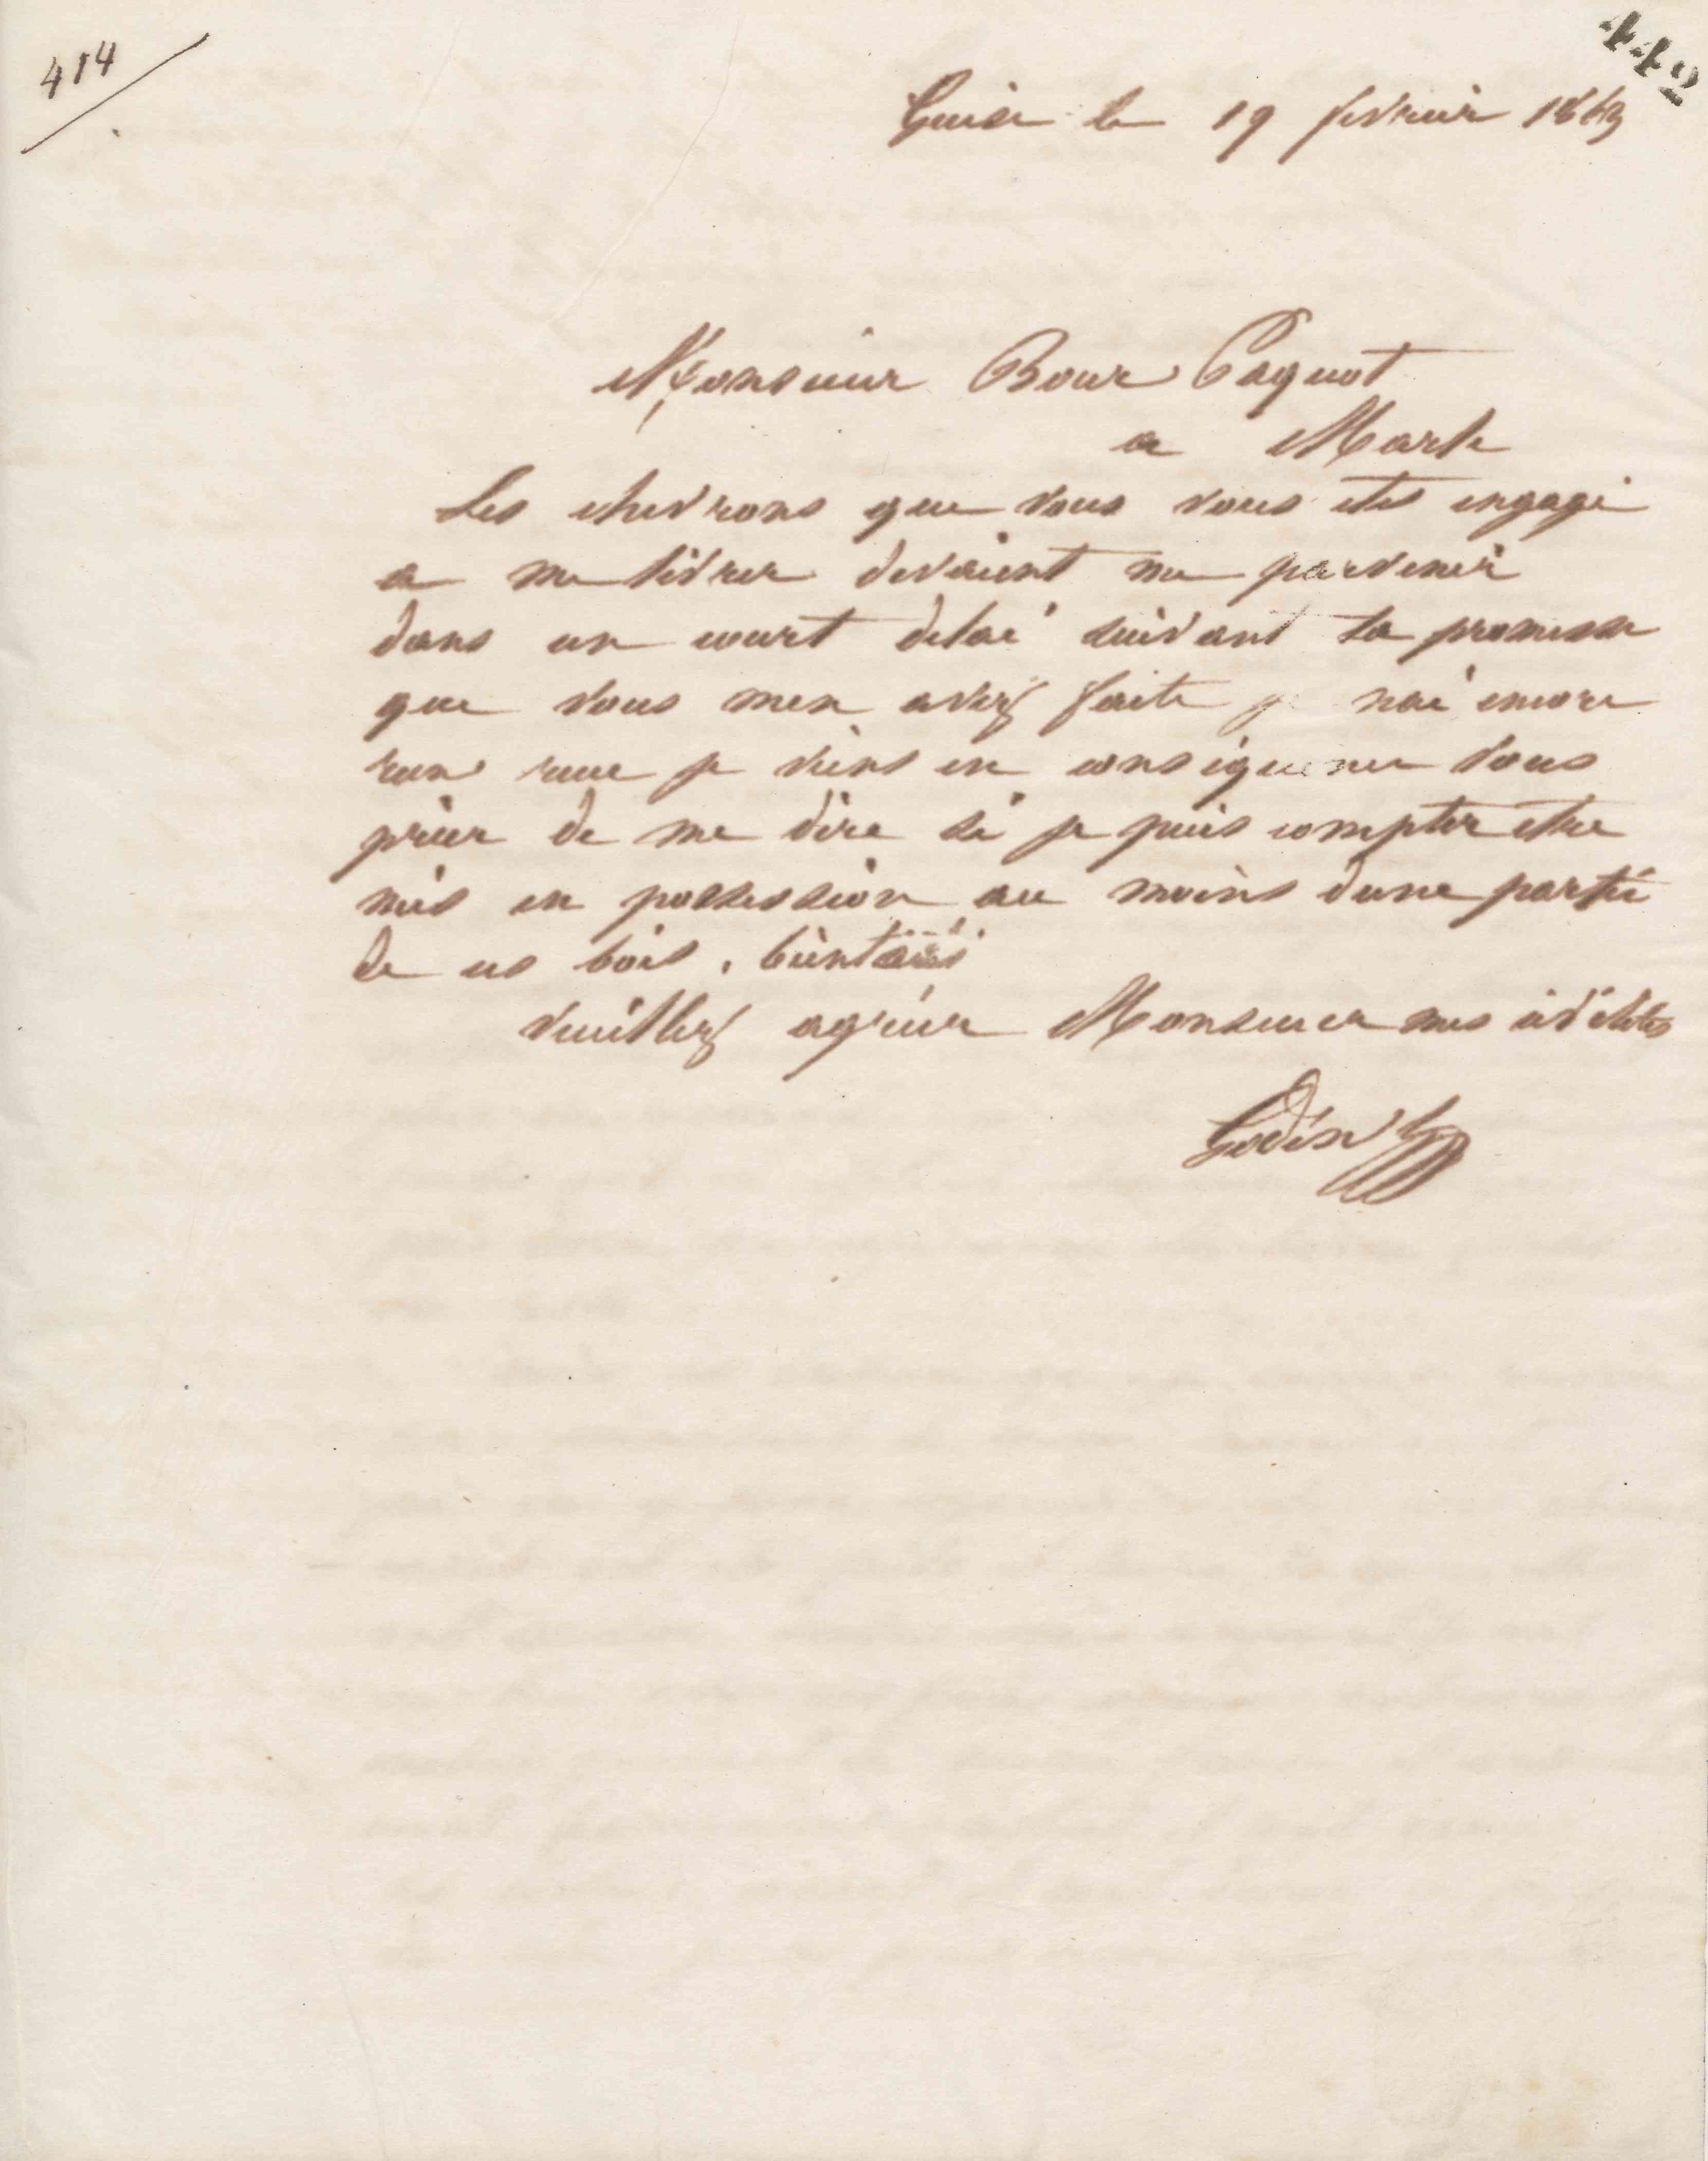 414
442
Guise le 19 fevrier 1863
Monsieur Bour Paquot
a Marle
Les chevrons que vous vous etes engagé
a me livrer devaient me parvenir
dans un court delai suivant la promesse
que vous men avez faite je nai encore
rien recu je viens en consequence vous
prier de me dire si je puis compter etre
mis en possession au moins dune partie
de ces bois, bientot
Veuillez agréer Monsieur mes
Godin